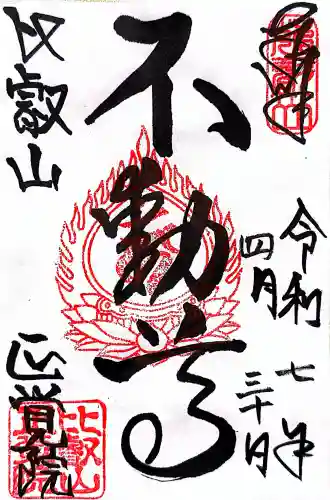 奉拝
令和七年
四月三十日
不動尊
比叡山
正覚院